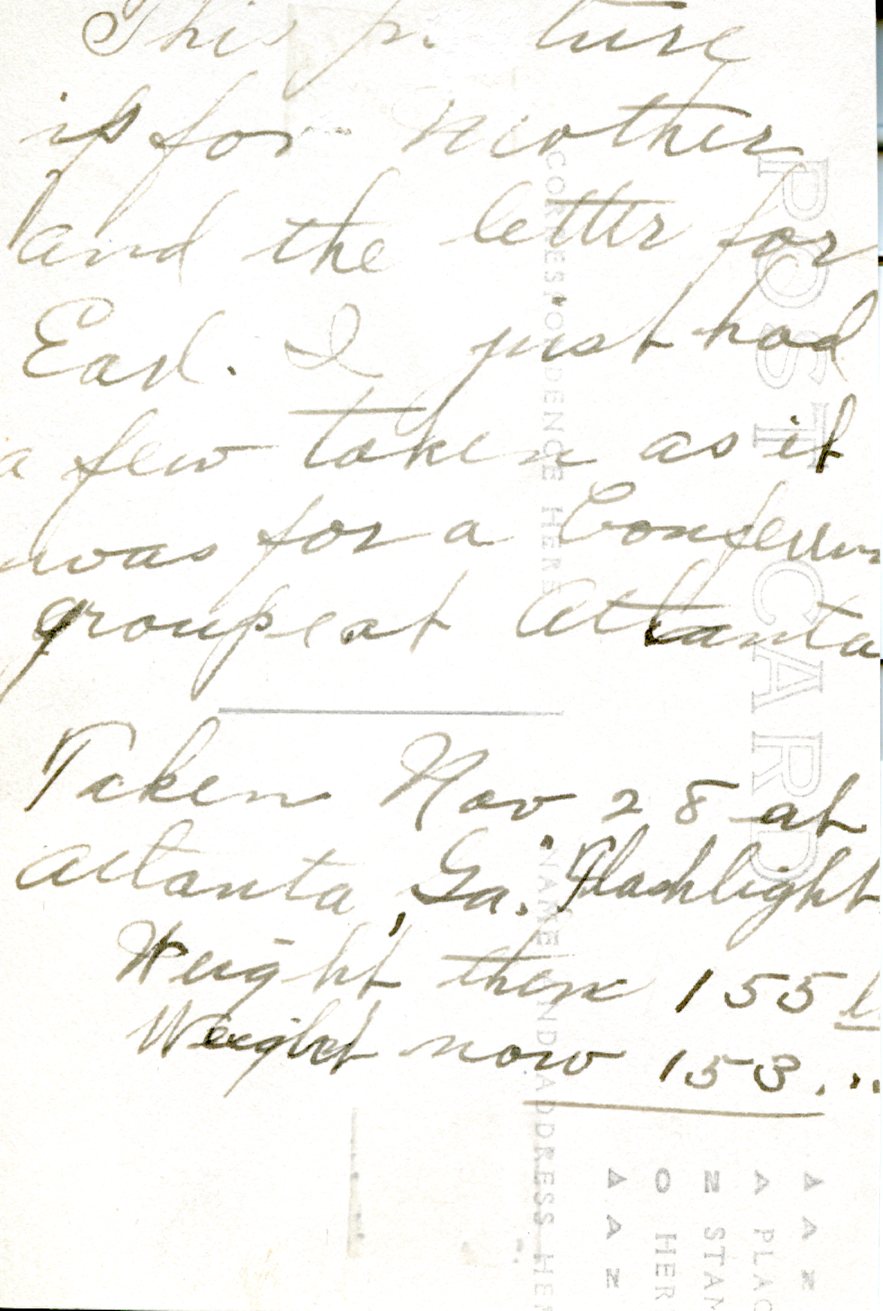 This picture
is for Mother
and the letter for
Earl. I just had
a few taken as it
was for a
group at Atlanta
Taken Nov 28 at
Atlanta, Ga. Flashlight
Weight then 155
Weight now 153
POST CARD
CORRESPONDENCE HERE
NAME AND ADDRESS HER
PLAC
STAM
HER
AZO